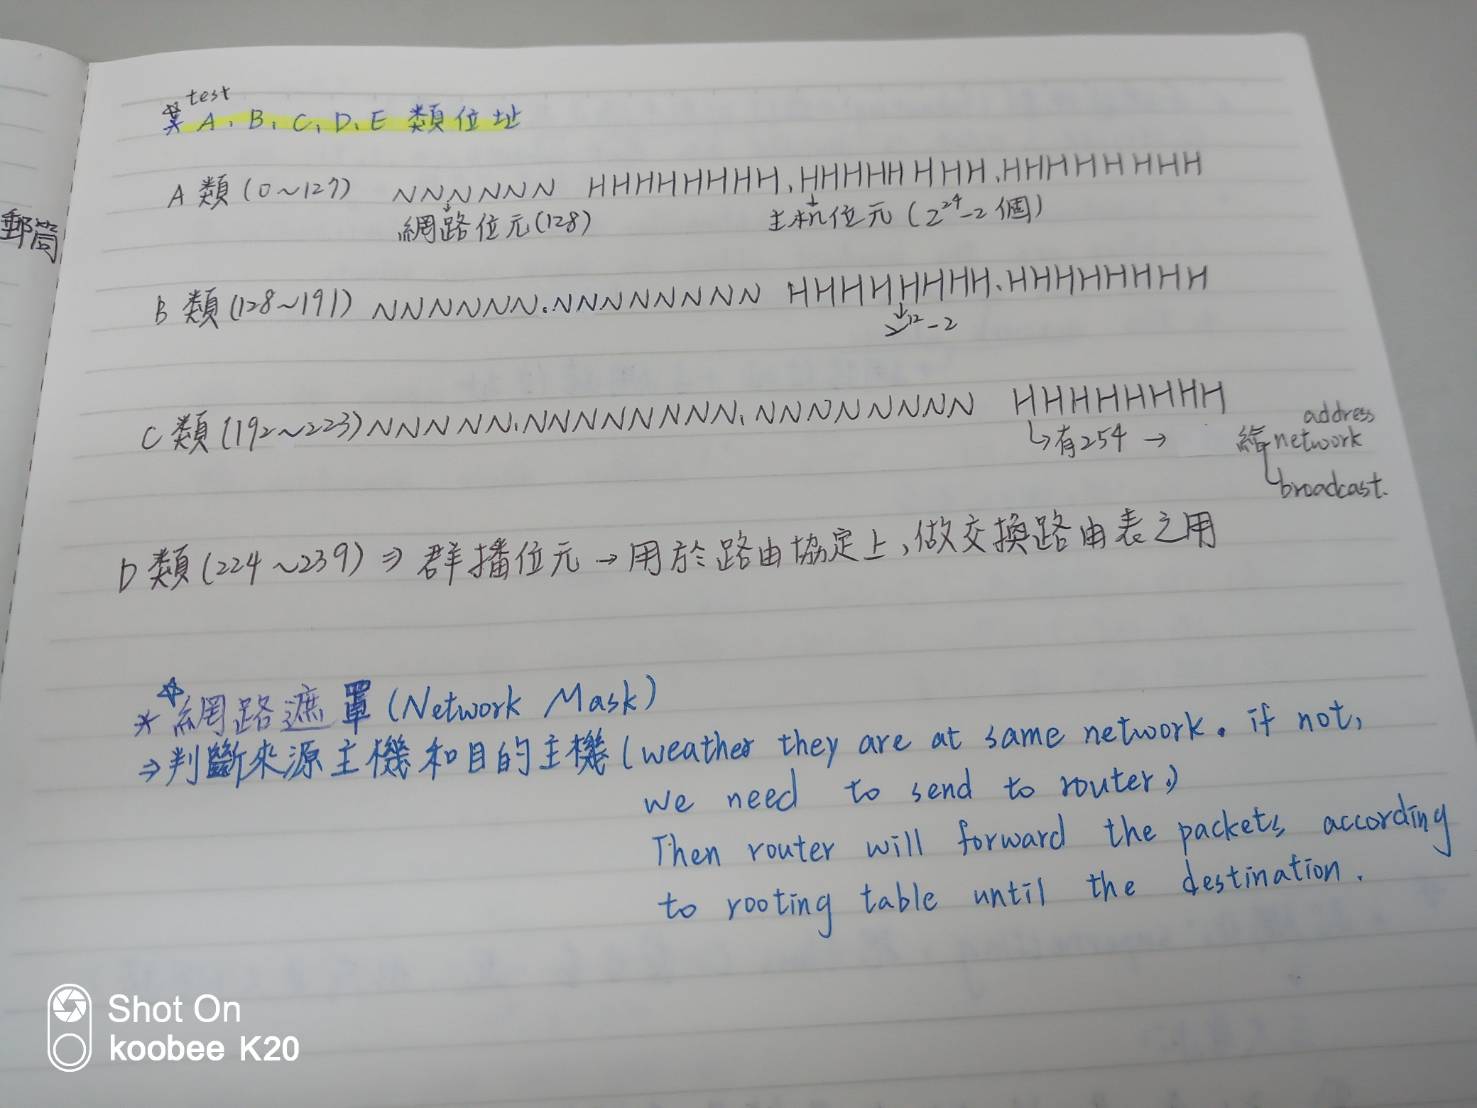 test
A、B、C、D、E 類位址
A 類 (0~127) NNNNNNN HHHHHHHH.HHHHHHHH.HHHHHHHH
網路位元(128) 主机位元 (2^24-2 個)
郵筒
B 類 (128~191) NNNNNNN.NNNNNNNN HHHHHHHH.HHHHHHHH
2^12-2
C 類 (192~223) NNNNNN.NNNNNNNNN.NNNNNNNN HHHHHHHH
address
↳有254 → 給 network
broadcast.
D 類 (224~239) ⇒ 群播位元 → 用於路由協定上,做交換路由表之用
*☆網路遮罩 (Network Mask)
⇒判斷來源主機和目的主機 (weather they are at same network. if not,
we need to send to router.)
Then router will forward the packets according
to rooting table until the destination.
Shot On
koobee K20